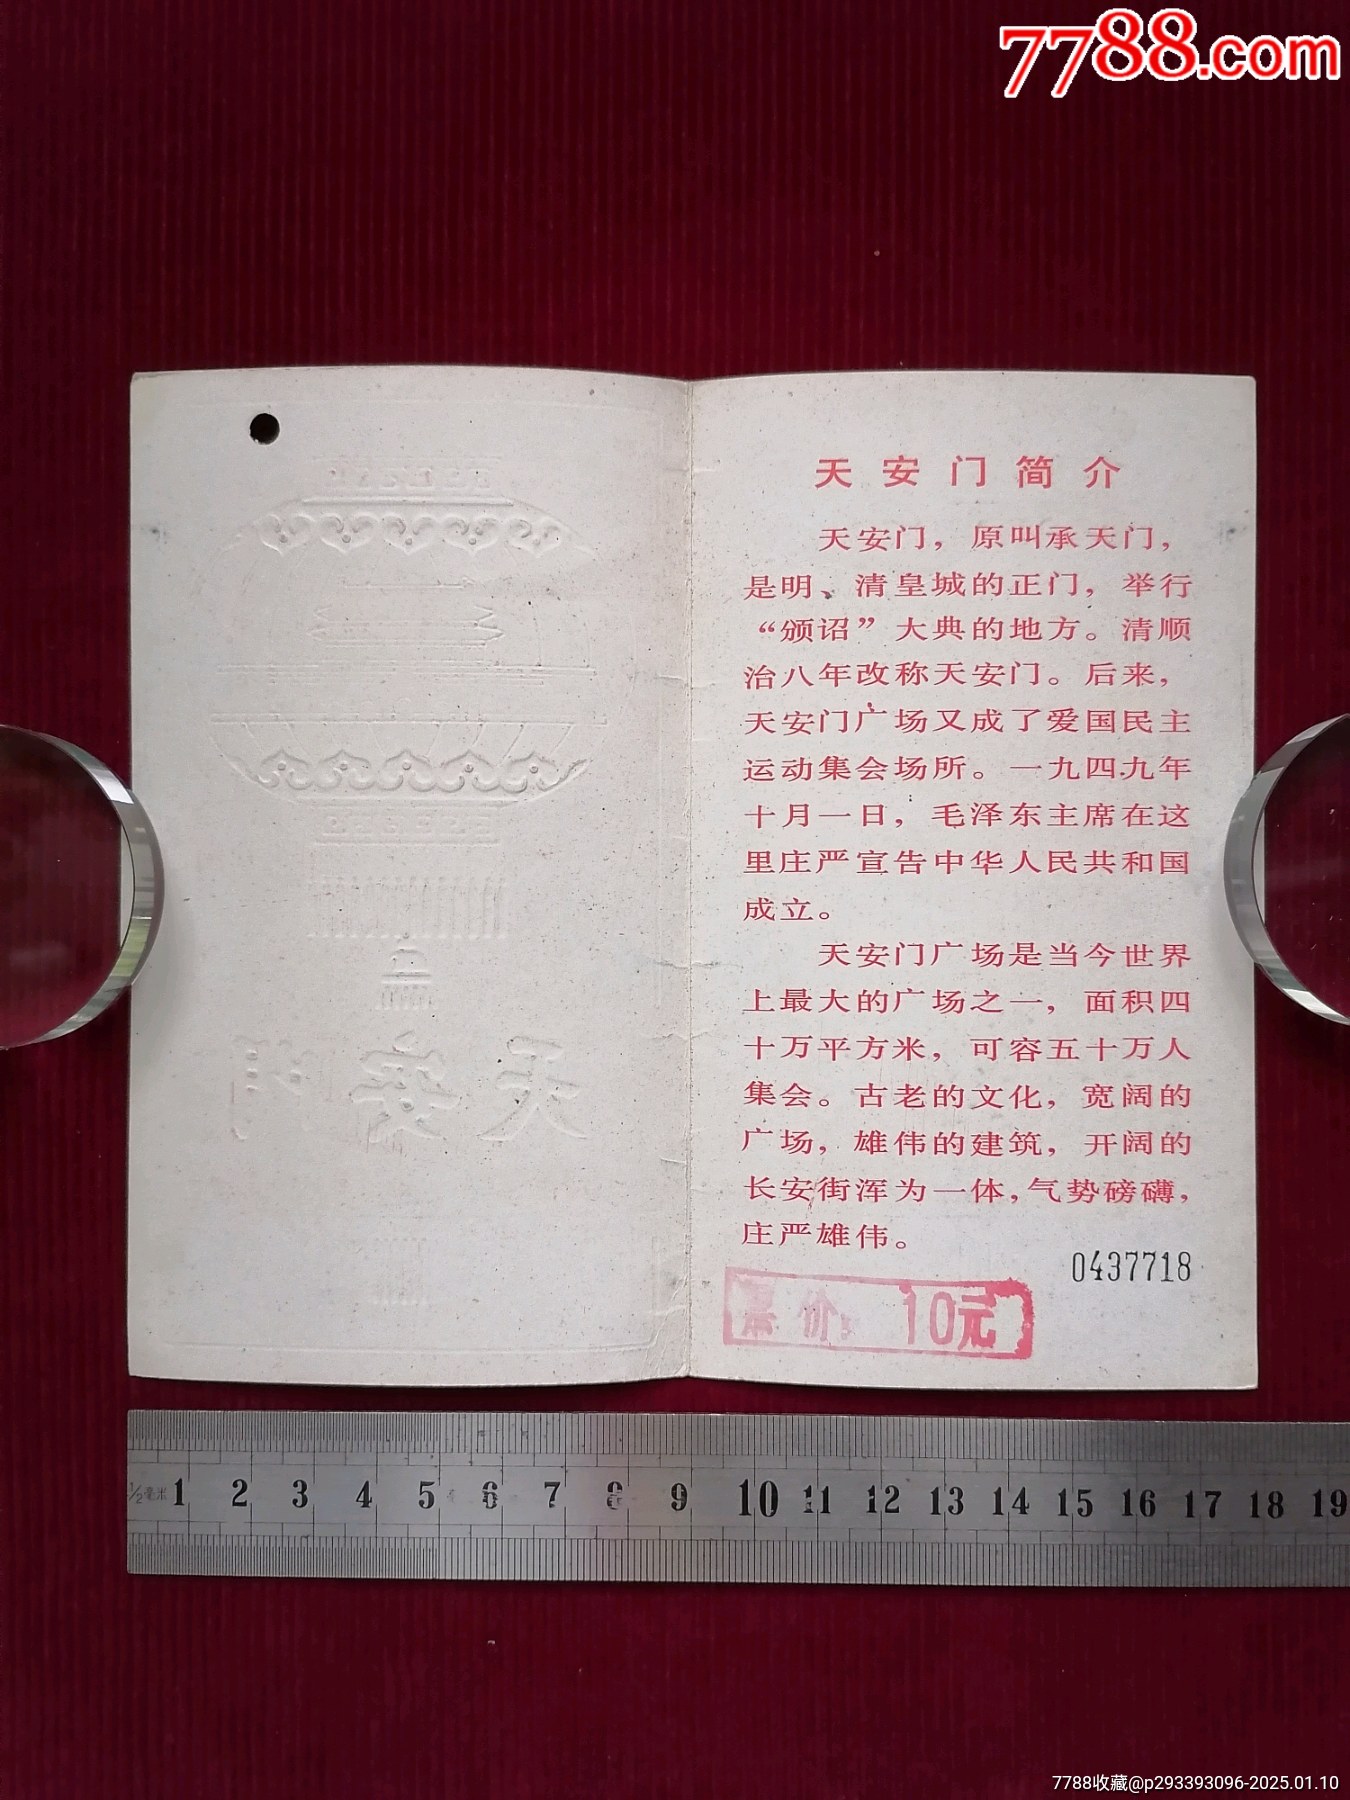 7788.com
天安门简介
天安门，原叫承天门，
是明、清皇城的正门，举行
“颁诏”大典的地方。清顺
治八年改称天安门。后来，
天安门广场又成了爱国民主
运动集会场所。一九四九年
十月一日，毛泽东主席在这
里庄严宣告中华人民共和国
成立。
天安门广场是当今世界
上最大的广场之一，面积四
十万平方米，可容五十万人
集会。古老的文化，宽阔的
广场，雄伟的建筑，开阔的
长安街浑为一体，气势磅礴，
庄严雄伟。
0437718
票价：10元
天安门
1/2毫米 1 2 3 4 5 6 7 8 9 10 11 12 13 14 15 16 17 18 19
7788收藏@p293393096-2025.01.10